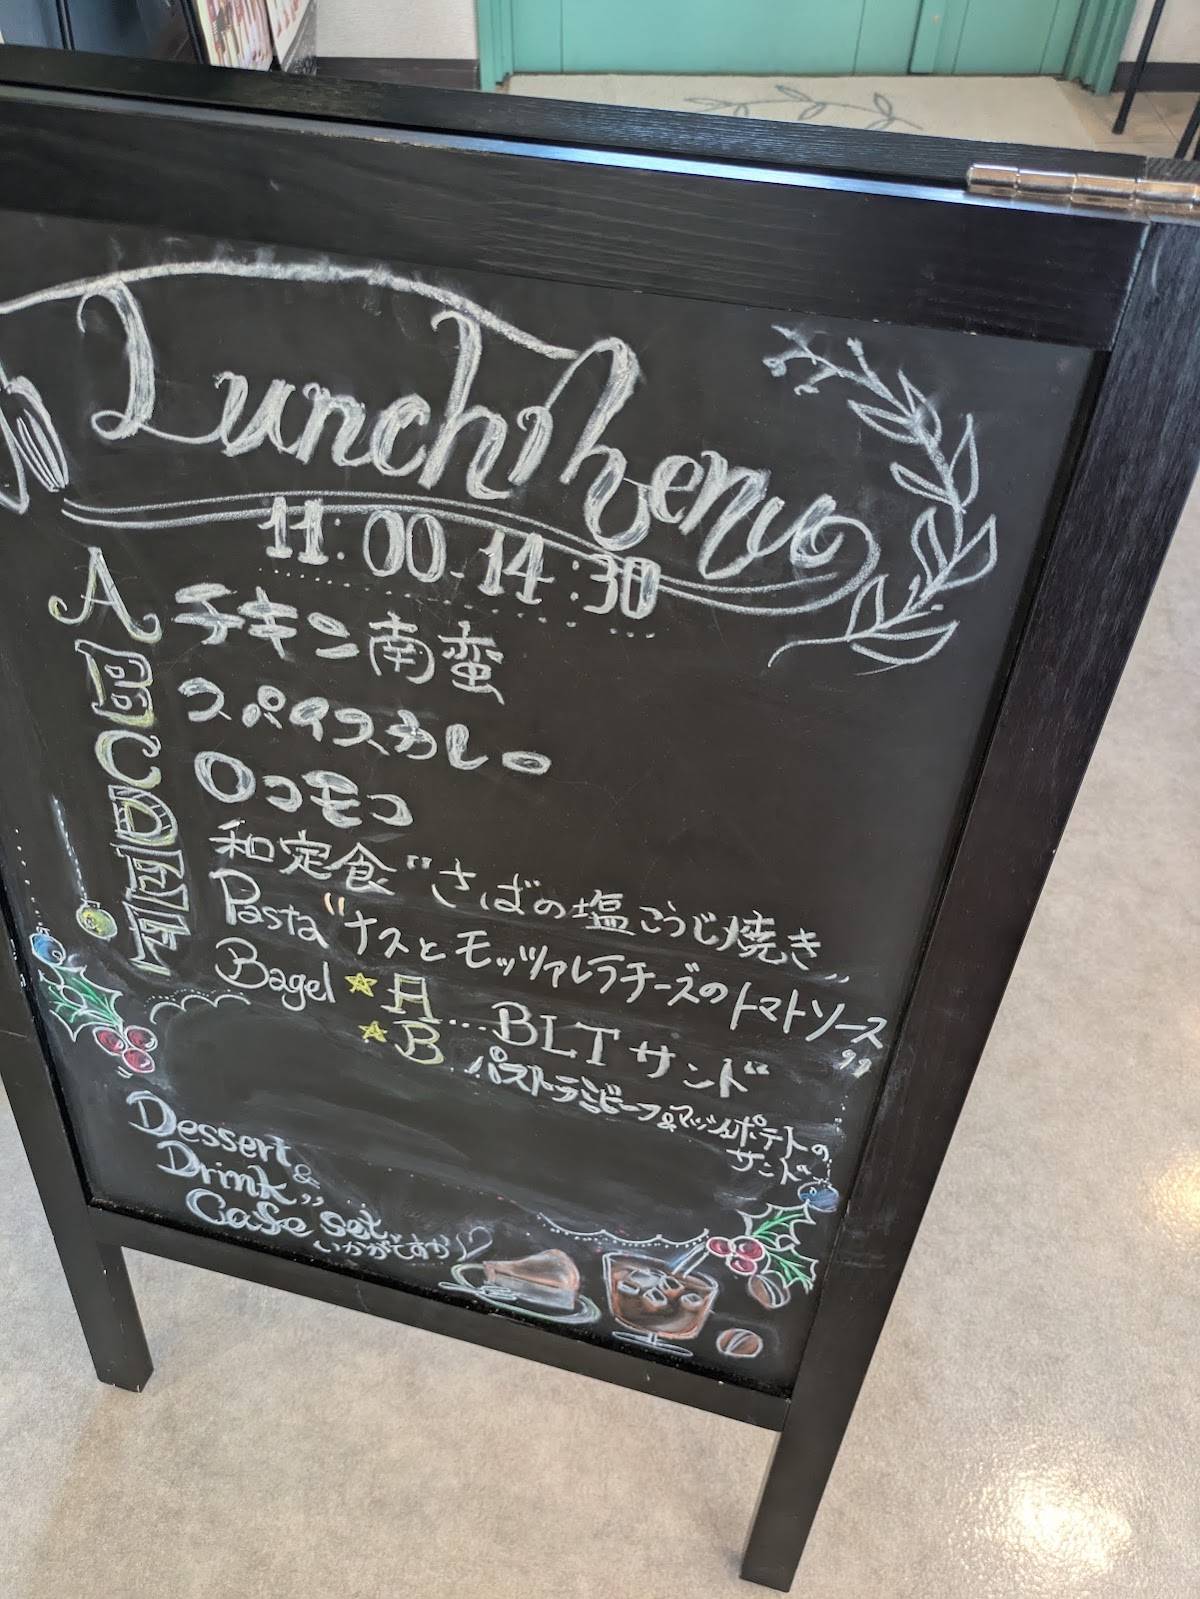 Lunch Menu
11:00-14:30
A チキン南蛮
B スパイスカレー
C ロコモコ
D 和定食 "さばの塩こうじ焼き"
E Pasta "ナスとモッツァレラチーズのトマトソース"
F Bagel ★A...BLTサンド
★B...パストラミビーフ&マッシュポテトの
サンド
Dessert &
Drink,,
Cafe set
いかがですか♡